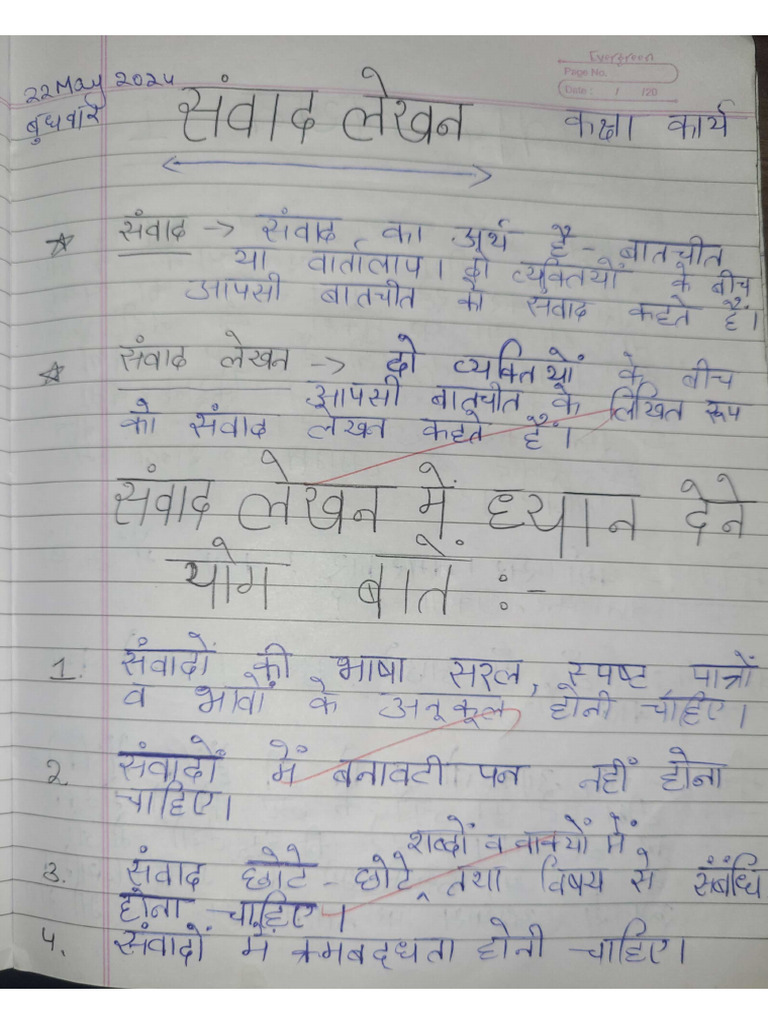 Evergreen
Page No.
Date : / /20
22 May 2024
बुधवार
संवाद लेखन
कक्षा कार्य
☆ संवाद -> संवाद का अर्थ है - बातचीत
या वार्तालाप। दो व्यक्तियों के बीच
आपसी बातचीत को संवाद कहते हैं।
☆ संवाद लेखन -> दो व्यक्तियों के बीच
आपसी बातचीत के लिखित रूप
को संवाद लेखन कहते हैं।
संवाद लेखन में ध्यान देने
योग बातें :-
1. संवादों की भाषा सरल, स्पष्ट पात्रों
व भावों के अनूकूल होनी चाहिए।
2. संवादों में बनावटी पन नहीं होना
चाहिए।
शब्दों व वाक्यों में
3. संवाद छोटे - छोटे ‸ तथा विषय से संबंधि
होना चाहिए।
4. संवादों में क्रमबद्धता होनी चाहिए।